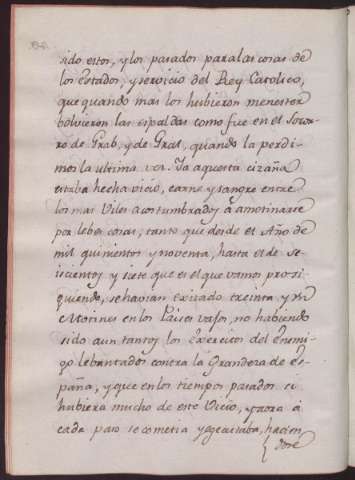 sido estos, y los pasados para las cosas de
los estados, y servicio del Rey Catolico,
que quando mas los hubieron menester
bolvieron las espaldas como fue en el Socor-
ro de Grab, y de Grol, quando la perdi-
mos la ultima vez. Ya aquesta cizaña
estaba hecha vicio, carne y sangre entre
los mas Viles acostumbrados a amotinarse
por lebes cosas, tanto que desde el Año de
mil quinientos y noventa, hasta el de se-
iscientos y siete que es el que vamos prosi-
guiendo, se habian exitado treinta y
Motines en los Paises vajos, no habiendo
sido aun tantos los Exercitos del Enemi-
go lebantados contra la Grandeza de Es-
paña, y que en los tiempos pasados si
hubiera mucho de este Vicio, y aora á
cada paso se cometia y egecutaba, hacien